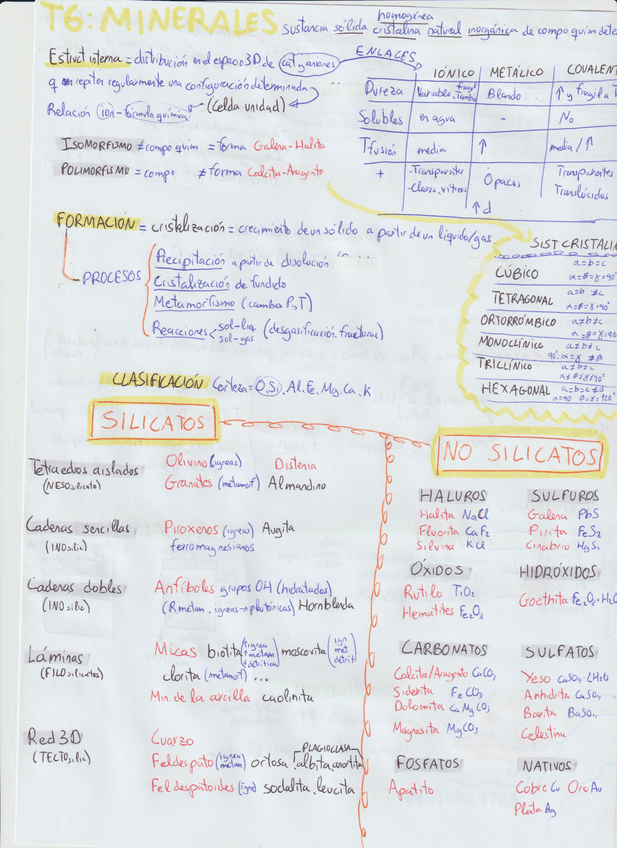 T6: MINERALES sustancia sólida homogénea cristalina natural inorgánica de compo quím dete
Estruct interna = distribución en el espacio 3D de cat y aniones
q repiten regularmente una configuración determinada
Relación ion-fórmula química (celda unidad)
ISOMORFISMO ≠ compo quim = forma Galena-Halita
POLIMORFISMO = compo ≠ forma Calcita-Aragonito
ENLACES
IÓNICO METÁLICO COVALENT
Dureza Variable Blando ↑ y frágil a T
Solubles en agua - No
Tfusión media ↑ media/↑
+ -Transparentes -claros, vítreos Opacos ↑d Transparentes Translúcidos
FORMACIÓN = cristalización = crecimiento de un sólido a partir de un líquido/gas
PROCESOS
Precipitación a partir de disolución
Cristalización de fundido
Metamorfismo (cambia P, T)
Reacciones sol-liq sol-gas (desgasificación, fracturas)
SIST CRISTALIN
CÚBICO a=b=c α=β=γ=90°
TETRAGONAL a=b≠c α=β=γ=90°
ORTORRÓMBICO a≠b≠c α=β=γ=90
MONOCLÍNICO a≠b≠c 90=α=γ≠β
TRICLÍNICO a≠b≠c α≠β≠γ≠90°
HEXAGONAL a=b=c≠d α=90 β=γ=120°
CLASIFICACIÓN Corteza = O, Si, Al, Fe, Mg, Ca, K
SILICATOS
Tetraedros aislados (NESOsilicato)
Olivino (ígneas) Distenia
Granates (metamof) Almandino
Cadenas sencillas (INOsilic)
Piroxenos (ígneas) Augita
ferromagnesianos
Cadenas dobles (INOsilic)
Anfíboles grupos OH (hidratados)
(R metam, ígneas→plutónicas) Hornblenda
Láminas (FILOsilicatos)
Micas biotita (ígnea +metam +detrítica) moscovita (ígn met detrít)
clorita (metamof) ...
Min. de la arcilla caolinita
Red 3D (TECTOsilic)
Cuarzo
PLAGIOCLASA
Feldespato (ígnea metam) ortosa, albita, anortita
Feldespatoides (ígn) sodalita, leucita
NO SILICATOS
HALUROS
Halita NaCl
Fluorita CaF2
Silvina KCl
SULFUROS
Galena PbS
Pirita FeS2
Cinabrio HgS
ÓXIDOS
Rutilo TiO2
Hematites Fe2O3
HIDRÓXIDOS
Goethita Fe2O3·H2O
CARBONATOS
Calcita/Aragonito CaCO3
Siderita FeCO3
Dolomita CaMgCO3
Magnesita MgCO3
SULFATOS
Yeso CaSO4·2H2O
Anhidrita CaSO4
Barita BaSO4
Celestina
FOSFATOS
Apatito
NATIVOS
Cobre Cu Oro Au
Plata Ag